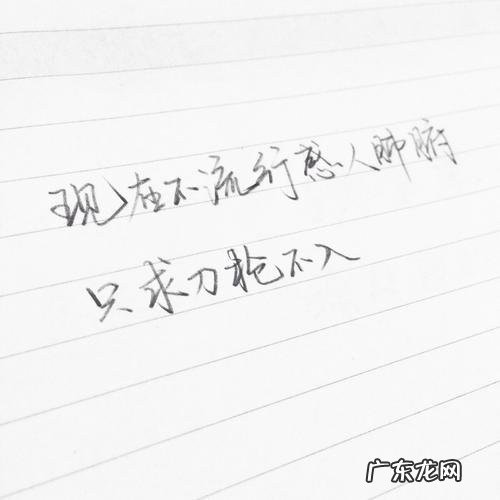 现在不流行感人肺腑
只求刀枪不入
广东龙网